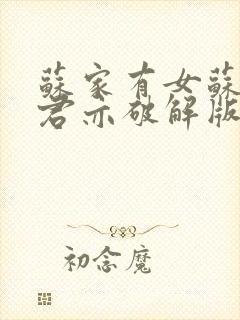 蘇家有女蘇
君亦破解版
初念魔